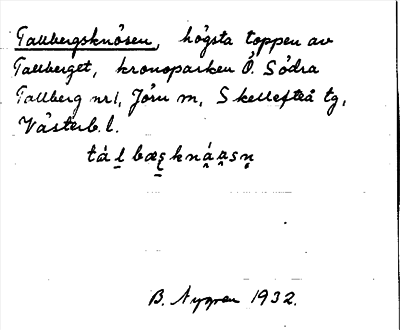 Tallbergsknösen, högsta toppen av
Tallberget, kronoparken Ö. Södra
Tallberg nr 1, Jörn m, Skellefteå tg,
Västerb. l.
B. Nygren 1932.